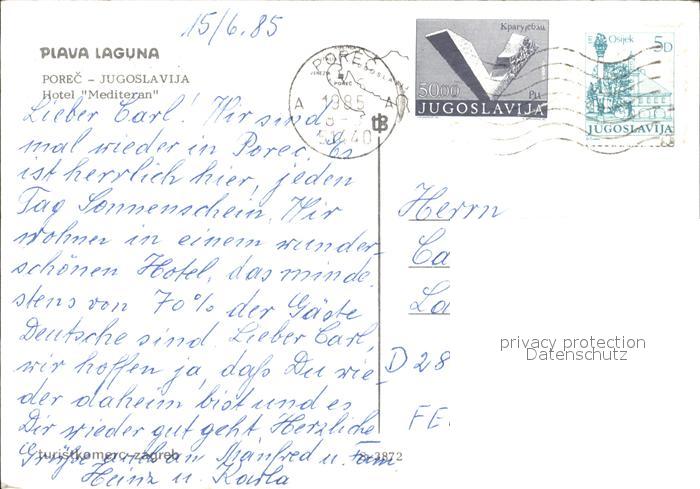 15/6.85
PLAVA LAGUNA
POREČ – JUGOSLAVIJA
Hotel "Mediteran"
Lieber Carl! Wir sind
mal wieder in Poreč. Es
ist herrlich hier, jeden
Tag Sonnenschein. Wir
wohnen in einem wunder-
schönen Hotel, das minde-
stens von 70% der Gäste
Deutsche sind. Lieber Carl,
wir hoffen ja, daß Du wie-
der daheim bist und es
Dir wieder gut geht. Herzliche
Grüße auch an Manfred u. Fam
Heinz u. Karla
turistkomerc-zagreb
3872
POREČ
POREČ
A A
1985
Крагујевац
5000
JUGOSLAVIJA
Osijek
5D
JUGOSLAVIJA
Herrn
Ca
La
D 28
FE
privacy protection
Datenschutz